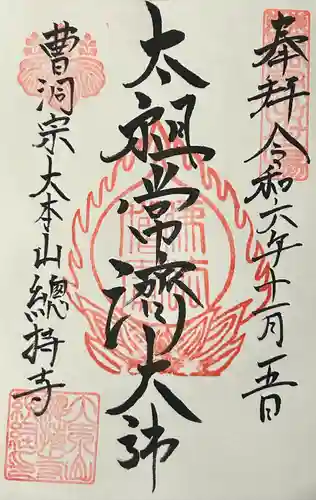 奉拝 令和六年十一月一五日
太祖常濟大師
曹洞宗大本山總持寺